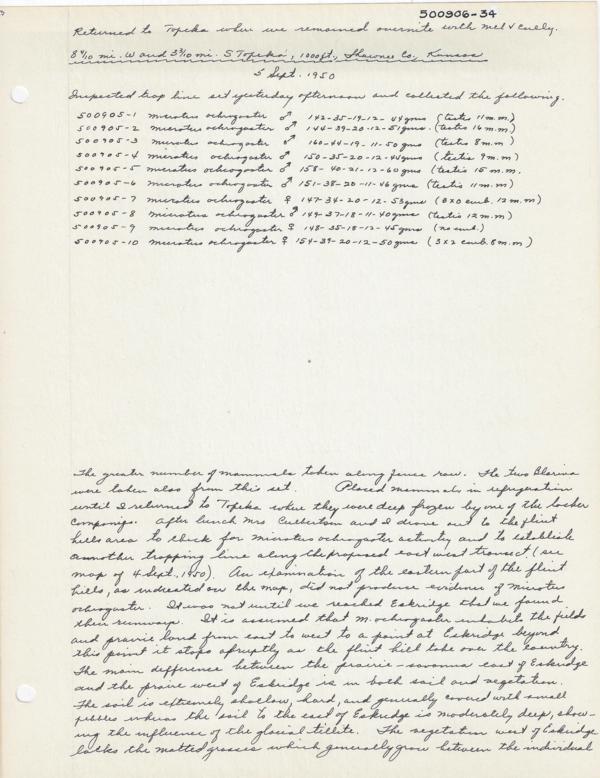 500906-34
Returned to Topeka where we remained overnite with Mel & Cully.
8 4/10 mi. W and 3 3/10 mi. S Topeka, 1000 ft., Shawnee Co., Kansas
5 Sept. 1950
Inspected trap line set yesterday afternoon and collected the following.
500905-1 Microtus ochrogaster ♂ 142-35-19-12-44gms (testis 11 m.m)
500905-2 Microtus ochrogaster ♂ 144-39-20-12-51gms. (testis 16 m.m)
500905-3 Microtus ochrogaster ♂ 160-44-19-11-50gms (testis 8 m.m)
500905-4 Microtus ochrogaster ♂ 150-35-20-12-44gms (testis 9 m.m)
500905-5 Microtus ochrogaster ♂ 158-40-21-12-60gms (testis 15 m.m.
500905-6 Microtus ochrogaster ♂ 151-38-20-11-46gms (testis 11 m.m)
500905-7 Microtus ochrogaster ♀ 147-34-20-12-53gms (2x0 emb. 12 m.m)
500905-8 Microtus ochrogaster ♂ 149-37-18-11-40gms (testis 12 m.m)
500905-9 Microtus ochrogaster ♀ 148-35-18-12-45gms (no emb.)
500905-10 Microtus ochrogaster ♀ 154-39-20-12-50gms (3x2 emb. 8 m.m)
The greater number of mammals taken along fence row. The two Blarina
were taken also from this set. Placed mammals in refrigeration
until I returned to Topeka where they were deep frozen by one of the locker
companys. After lunch Mrs Culbertson and I drove out to the flint
hills area to check for Microtus ochrogaster activity and to establish
another trapping line along the proposed east west transect (see
map of 4 Sept., 1950). An examination of the eastern part of the flint
hills, as indicated on the map, did not produce evidence of Microtus
ochrogaster. It was not until we reached Eskridge that we found
their runways. It is assumed that M. ochrogaster inhabits the fields
and prairie land from east to west to a point at Eskridge beyond
this point it stops abruptly as the flint hill take over the country.
The main difference between the prairie-savanna east of Eskridge
and the praire west of Eskridge is in both soil and vegetation.
The soil is extremely shallow, hard, and generally covered with small
pebbles whereas the soil to the east of Eskridge is moderately deep, show-
ing the influence of the glacial tillite. The vegetation west of Eskridge
lackes the matted grasses which generally grow between the individual